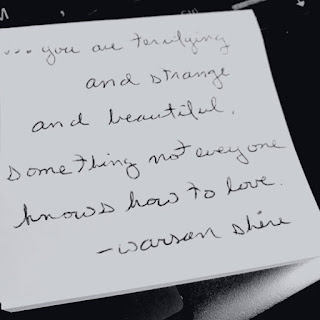 ... you are terrifying
and strange
and beautiful.
something not everyone
knows how to love.
-warsan shire